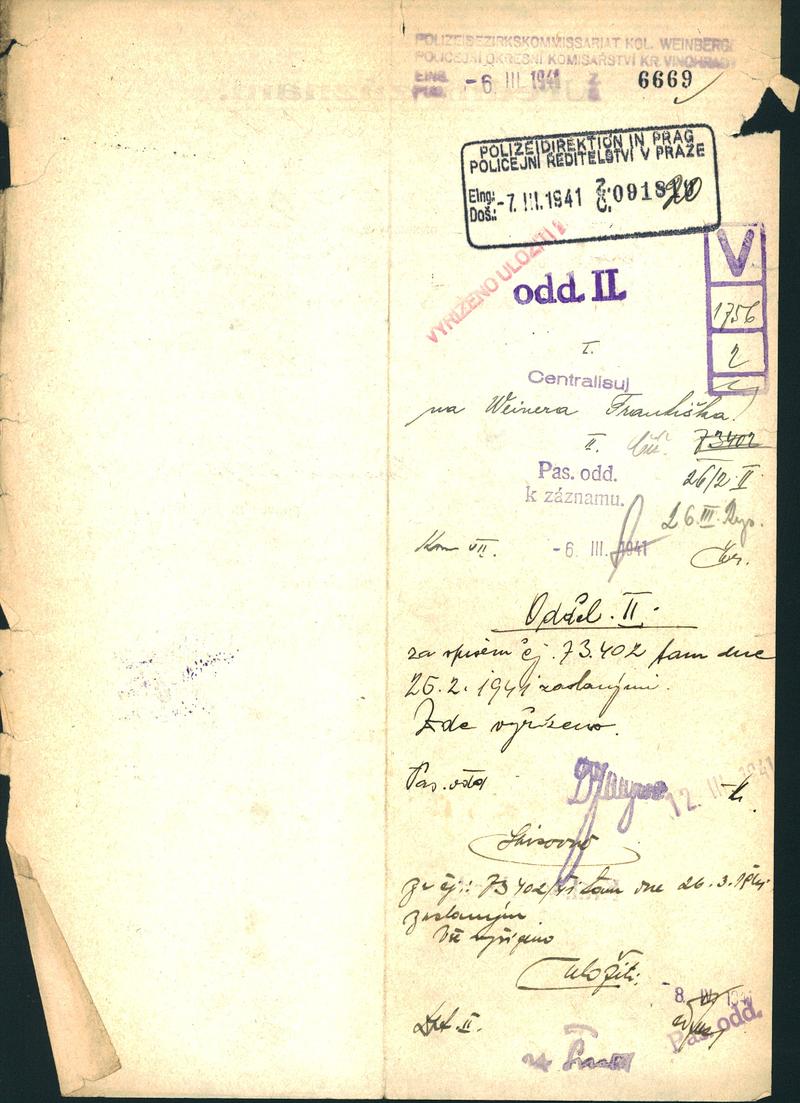 POLIZEIBEZIRKSKOMMISSARIAT KGL. WEINBERGE
POLICEJNÍ OKRESNÍ KOMISAŘSTVÍ KR. VINOHRADY
EING. -6. III. 1941 Z 6669
POLIZEIDIREKTION IN PRAG
POLICEJNÍ ŘEDITELSTVÍ V PRAZE
Eing:
Doš.: -7. III. 1941 Z. Č. 0918
20
VYŘÍZENO ULOŽITI
odd. II.
V
1756
2
I.
Centralisuj
na Weinera Františka.
II. 73402
Pas. odd. 26/2 II
k záznamu.
26. III.
Kom VII. -6. III. 1941
Odděl. II.
za spisem čj. 73.402 tam dne
26.2. 1941 zaslaným.
Zde vyřízeno.
Pas. odd
12. III. 1941
za čj.: 73402/41 tam dne 26.3.
zaslaným
vyřízeno
Uložiti.
8. IV. 194
Pas. odd.
II.